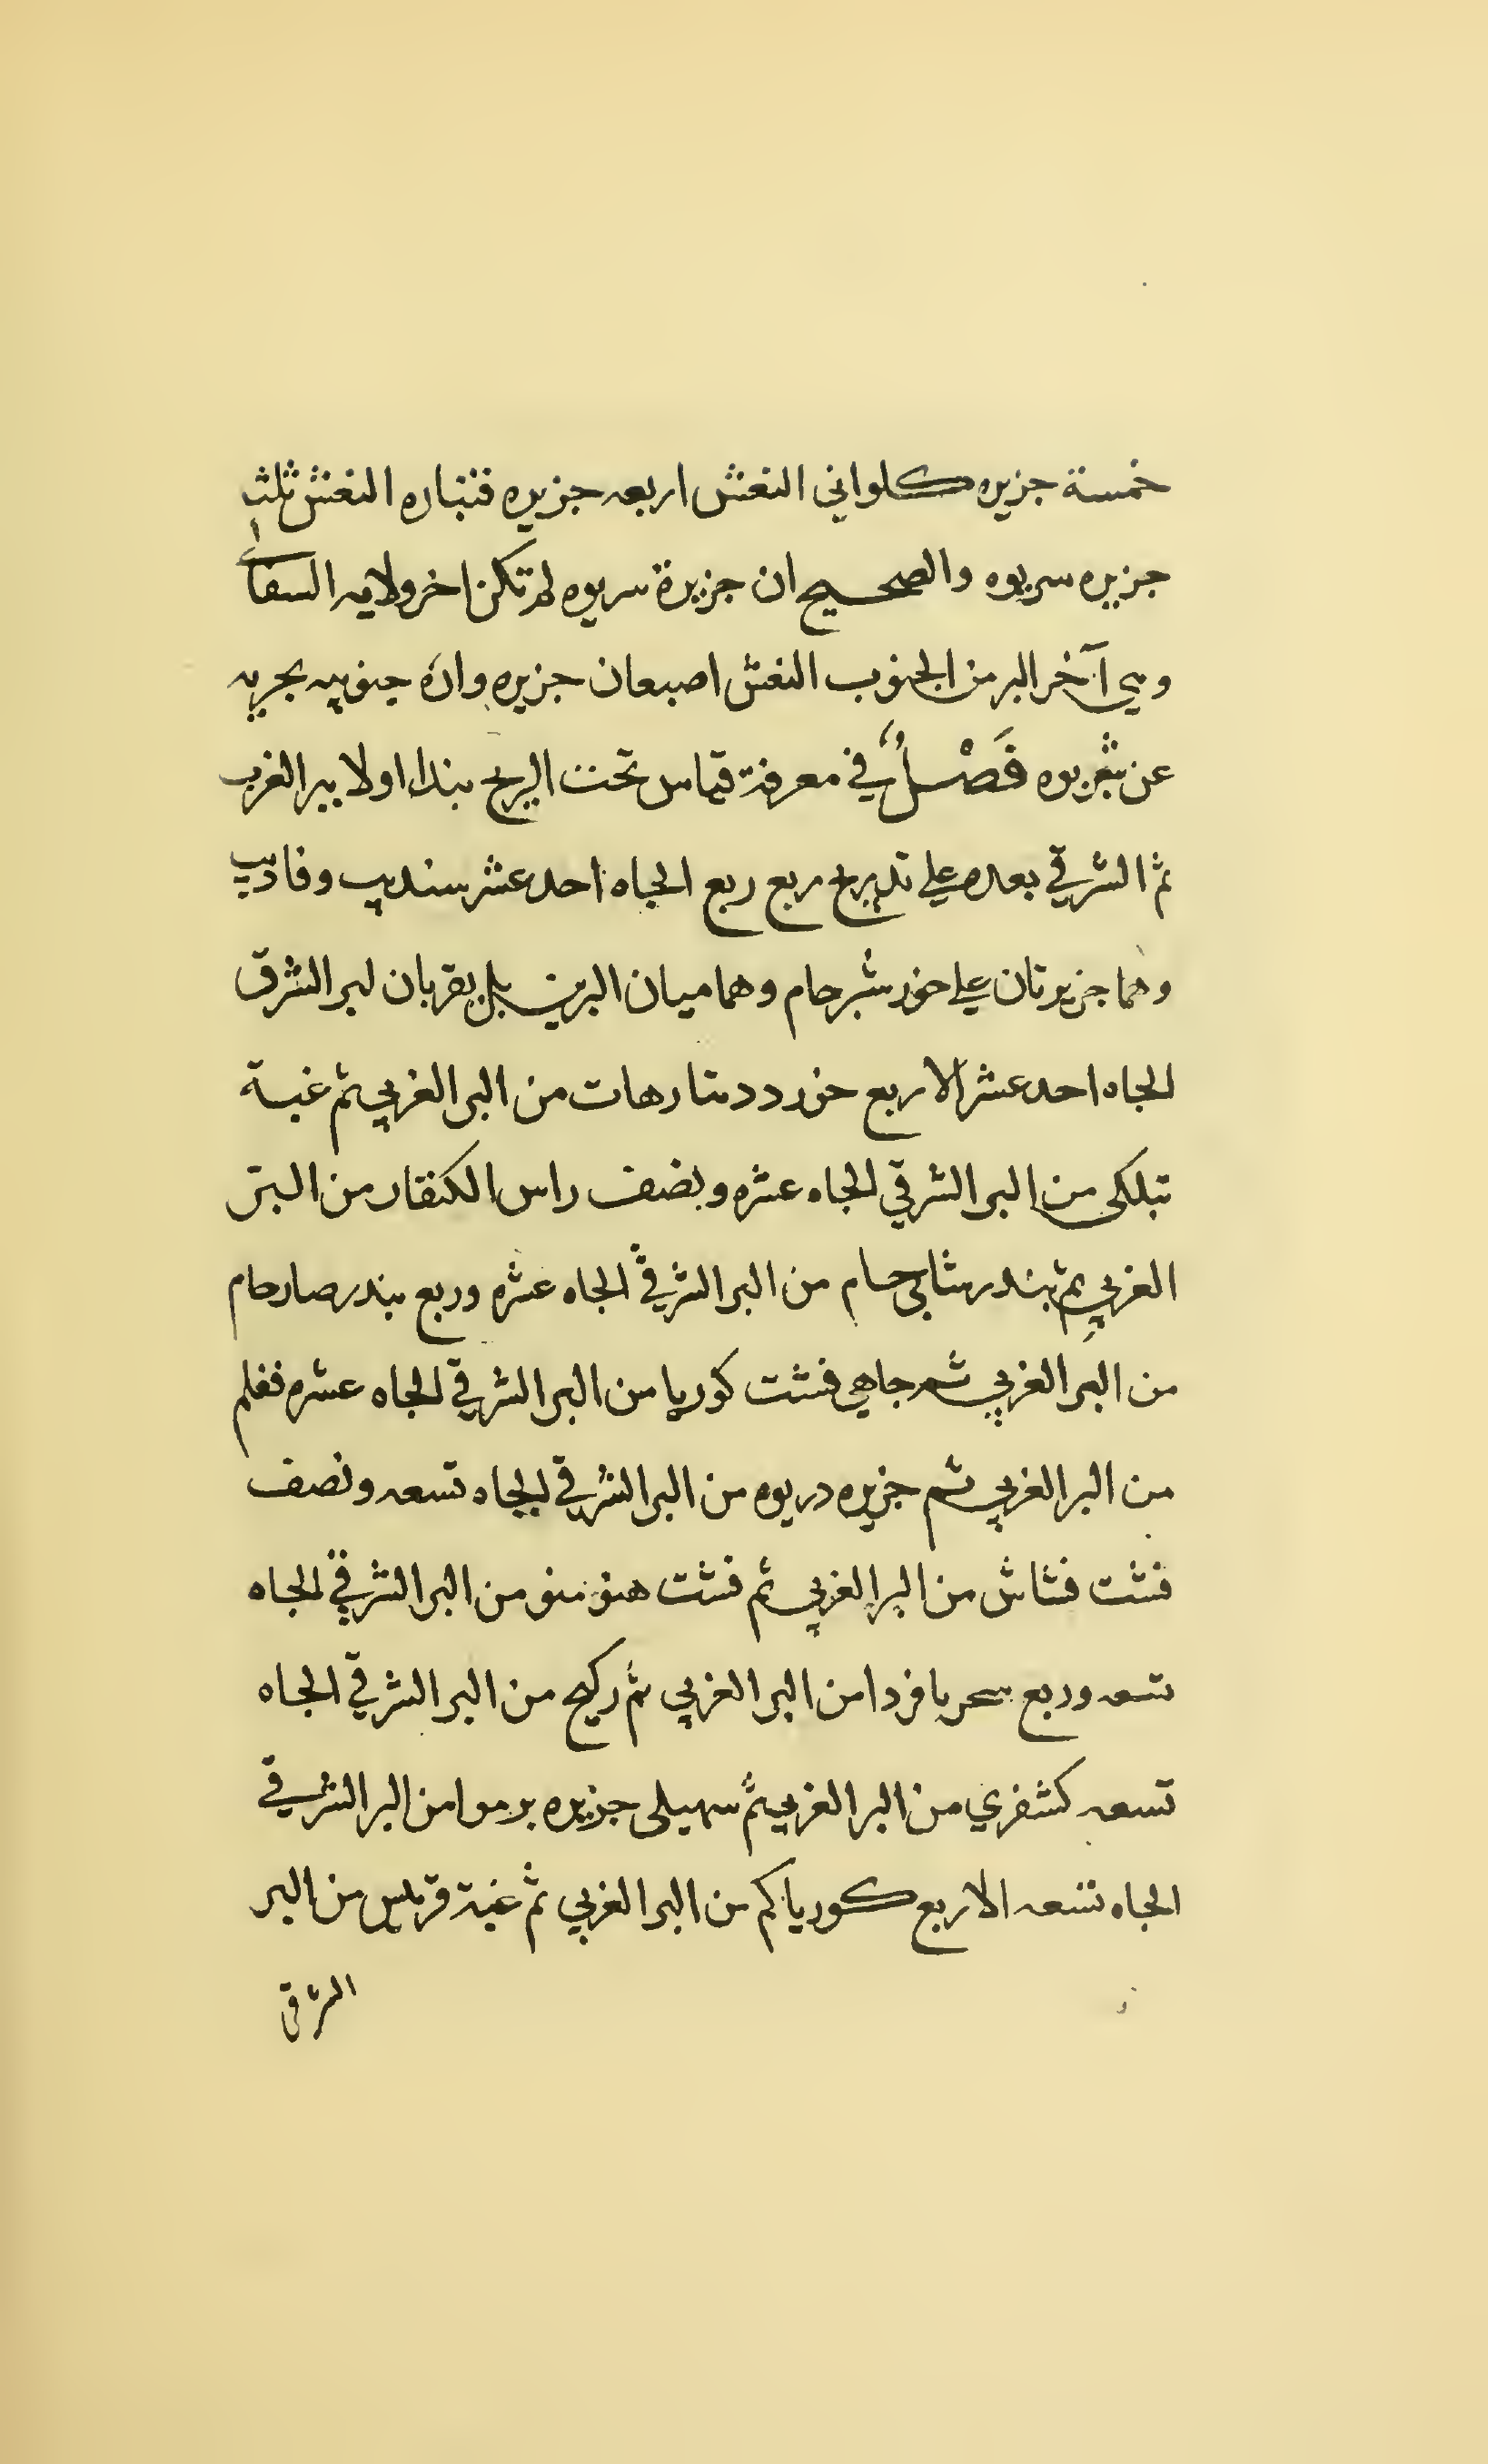 خمسة جزيره كلواني النعش اربعه جزيره فنباره النعش ثلث
جزيره سربوه والصحيح ان جزيرة سربوه لم تكن اخر ولايه السفال
وهي آخر البر من الجنوب النعش اصبعان جزيره واق جنوبيه بحريه
عن شربوه فَصْلٌ في معرفة قياس تحت الريح نبدا اولا ببر الغرب
ثم الشرقي بعده علي تدريج ربع ربع الجاه احد عشر سنديب وفاديب
وهما جزيرتان علي خور شرحام وهما ميان البرين بل يقربان لبر الشرق
الجاه احد عشر الاربع خور ددمتارهات من البر الغربي ثم غبة
تبلكي من البر الشرقي الجاه عشره ونصف راس الكنفار من البر
الغربي ثم بندر شابي حام من البر الشرقي الجاه عشره وربع بندر صارحام
من البر الغربي ثم جاهي فشت كوريا من البر الشرقي الجاه عشره فغلم
من البر الغربي ثم جزيره دريوه من البر الشرقي الجاه تسعه ونصف
فشت فشاش من البر الغربي ثم فشت هنومنو من البر الشرقي الجاه
تسعه وربع بافردا من البر الغربي ثم ركيح من البر الشرقي الجاه
تسعه كشفري من البر الغربي ثم سهيلي جزيره برموا من البر الشرقي
الجاه تسعه الاربع كورياكم من البر الغربي ثم غبة قرملس من البر
الشرقي